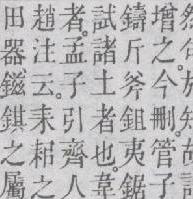 增之。今刪。管子
鑄斤斧鉏夷鋸
試諸土者也。韋
者。孟子引齊人
趙注云。耒耜之
田器鎡錤之屬